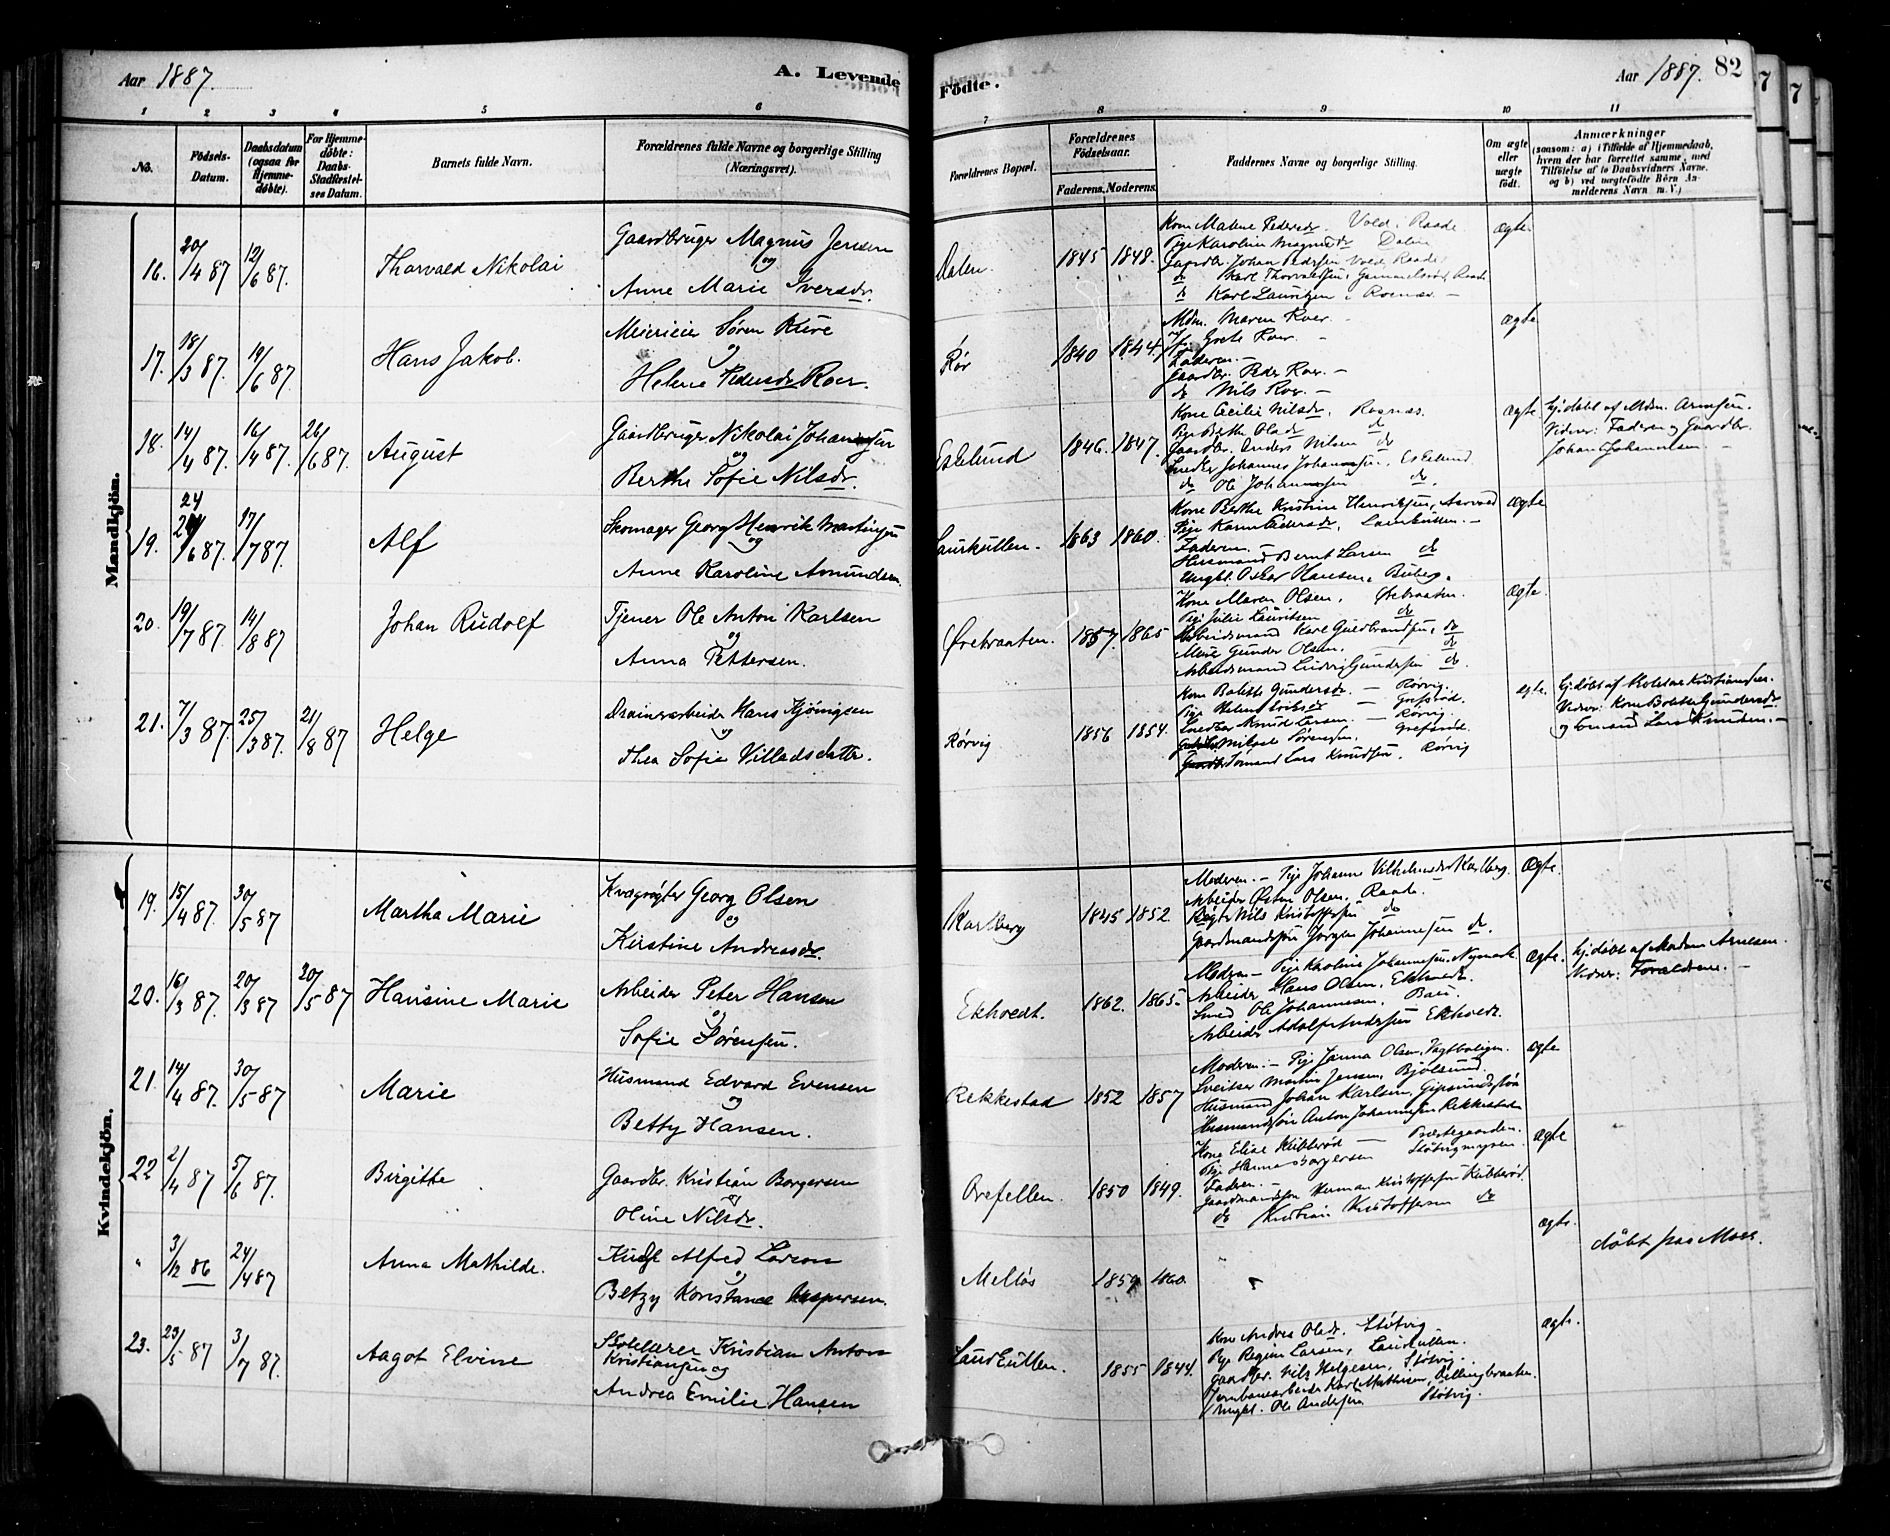 Aar 1887.
A. Levende
Fødte.
Aar 1887. 82
1 2 3 4 5 6 7 8 9 10 11
No.
Fødsels-Datum.
Daabsdatum (ogsaa for Hjemme-døbte).
For Hjemme-døbte: Daabs-Stadfæstel-ses Datum.
Barnets fulde Navn.
Forældrenes fulde Navne og borgerlige Stilling (Næringsvei).
Forældrenes Bopæl.
Forældrenes Fødselsaar.
Faderens. Moderens.
Faddernes Navne og borgerlige Stilling.
Om ægte eller uægte født.
Anmærkninger
(saasom: a) i Tilfælde af Hjemmedaab,
hvem der har forrettet samme, med
Tilføielse af to Daabsvidners Navne,
og b) ved uægtefødte Børn An-
melderens Navn m. V.)
Mandkjön.
16. 20/4 87 12/6 87. Thorvald Nikolai
Gaardbruger Magnus Jensen
og
Anne Marie Iversdr.
Dalen. 1845 1848.
Kone Malene Pedersdr. Vold i Raade
Pige Karoline Magnusdr Dalen
Gaardbr. Johan Pedersen Vold Raade
do Karl Thorvaldsen,
do Karl Lauritzen
ægte
17. 18/3 87. 19/6 87. Hans Jakob.
Meierieier Søren Kure
og
Helene Pedersdr Roer.
Rør 1840 1844.
Mdm. Maren Roer.
Jfr. Grete Roer.
Faderen.
Gaardbr. Peder Roer.
do Nils Roer.
ægte
18. 14/4 87. 16/4 87. 26/6 87. August
Gaardbruger Nikolai Johannesen
og
Berthe Sofie Nilsdr.
Eskelund 1846. 1847.
Kone Cecilie Nilsdr.
Pige Berthe Olsdr do
Gaardbr. Anders Nilsen do
Snedker Johannes Johannesen, Eskelund.
do Ole Johannesen do.
ægte
Hj.døbt af Mdm. Arnesen.
Vidner: Faderen og Gaardbr.
Johan Johannesen.
19. 24/6 87. 17/7 87. Alf
Skomager Georg Henrik Martinsen
og
Anne Karoline Amundsen.
Laurkullen. 1863 1860.
Kone Berthe Kristine Henriksen,
Pige Karen Pedersdr, Laurkullen.
Faderen.
Husmand Bernt Larsen do
Ungkl. Oskar Hansen, Buberg.
ægte
20. 19/7 87. 14/8 87 Johan Rudolf
Tjener Ole Anton Karlsen
og
Anna Pettersen.
Ørebraaten. 1857. 1865
Kone Maren Olsen. Ørebraaten.
Pige Julie Lauritsen do
Arbeidsmand Karl Guldbrandsen, do
Gunder Olsen. do
Arbeidsmand Ludvig Gundersen do.
ægte
21. 7/3 87. 25/3 87. 21/8 87 Helge
Drainsarbeider Hans Kjønigsen
og
Thea Sofie Villadsdatter.
Rørvig 1856 1854.
Kone Bolette Gundersdr. Rørvig.
Pige Helene
Snedker Knud Larsen. Rørvig.
Mikael Sørensen.
Lars Knudsen. Rørvig
ægte.
Hj.døbt af Kristiansen.
Vidner: Kone Bolette Gundersdr
og Lars Knudsen.
Kvindekjön.
19. 15/4 87. 30/5 87 Martha Marie
Kvægrøgter Georg Olsen
og
Kirstine Andreasdr.
Karlberg 1845 1852.
Moderen. Pige Johanne Vilhelmsdr Karlberg.
Arbeider Østen Olsen, Raade.
Røgter Nils Kristoffersen do
Gaardmandssøn Jørgen Johannesen do.
Ægte.
20. 16/3 87. 20/3 87 30/5 87 Hansine Marie
Arbeider Peter Hansen
og
Sofie Sørensen.
Ekhoedt. 1862. 1865.
Moderen. Pige Karoline Johannesen. Nymark
Arbeider Hans Olsen, Ekhoedt.
Smed Ole Johannesen,
Arbeider Adolf Andersen Ekhoedt.
ægte.
Hj.døbt af Madam Arnesen.
Vidner: Forældrene.
21. 14/4 87. 30/5 87 Marie
Husmand Edvard Evensen
og
Betty Hansen.
Rekkestad 1852 1857
Moderen. Pige Janna Olsen, Vagtboligen.
Sveitser Martin Jensen, Bjølsund.
Husmand Johan Karlsen,
Husmandssøn Anton Johannesen Rekkestad
ægte
22 2/4 87 5/6 87. Birgitte
Gaardbr. Kristian Borgersen
og
Oline Nilsdr.
Orefellen. 1850 1849.
Kone Elise Kihlerød Præstegaarden.
Pige Hanna Borgersen Støtvigmyren.
Faderen.
Gaardmandssøn Herman Kristoffersen Kihlerød.
do Kristian Kristoffersen do
ægte
" 3/12 86 24/4 87 Anna Mathilde.
Kudsk Alfred Larsen
og
Betzy Konstance Kaspersen.
Melløs 1859 1860.
ægte.
døbt paa Moss.
23. 23/5 87 3/7 87. Aagot Elvine
Skolelærer Kristian Anton
Kristiansen og
Andrea Emilie Hansen
Laurkullen. 1855 1844.
Kone Andrea Olsdr. Støtvig
Pige Regine Larsen, Laurkullen.
Gaardbr. Nils Helgesen, Støtvig.
Jernbanearbeider Karl Mathisen, Dillingbraaten.
Ungkl. Ole Andersen Støtvig.
ægte.